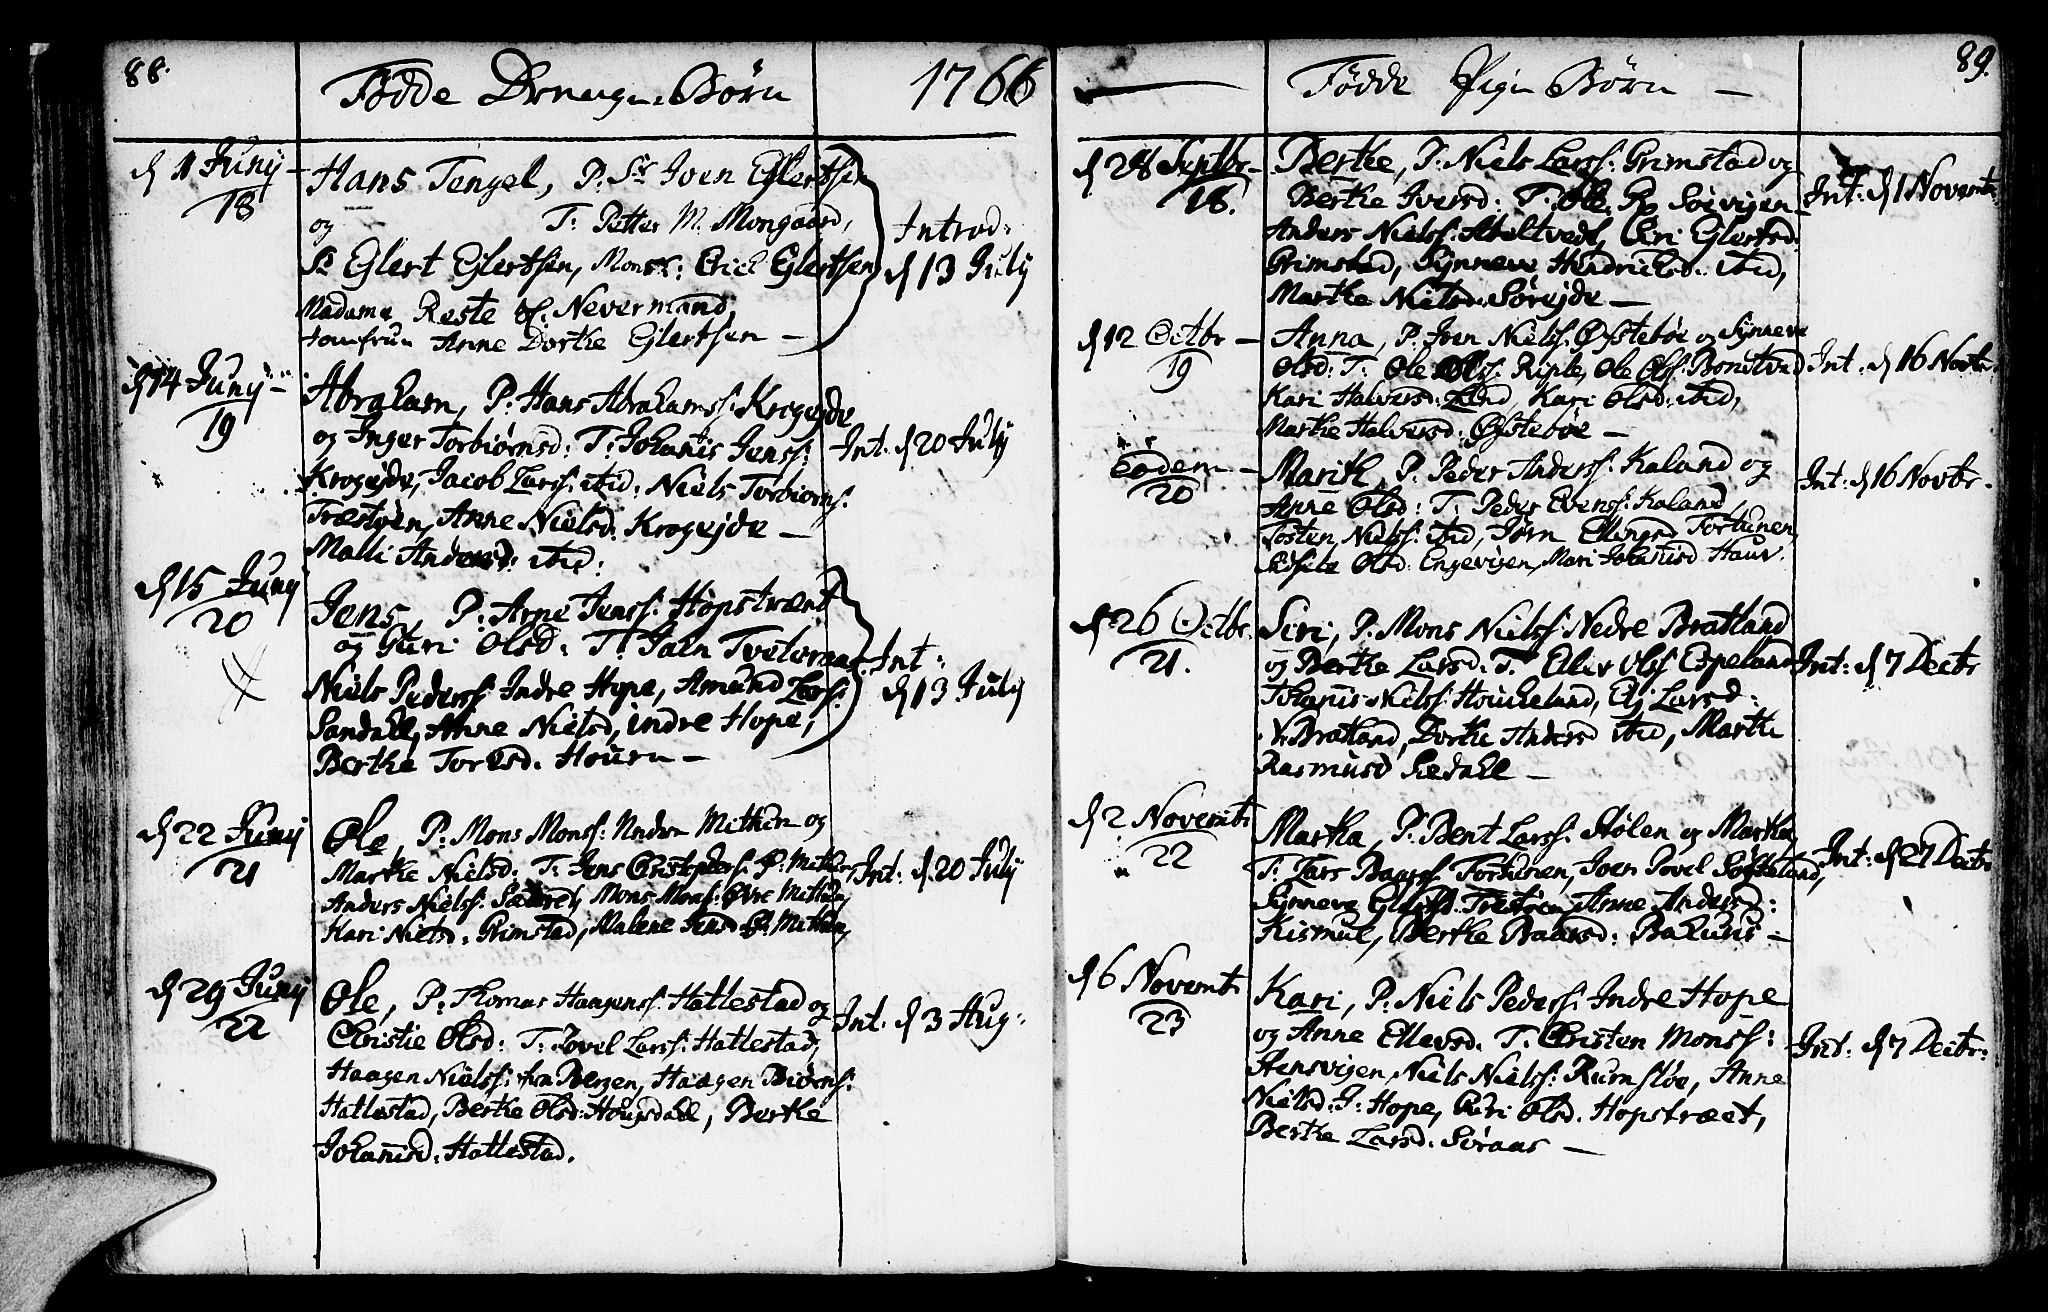 88.
Födde Drenge-Börn
1766
d 11 Junij
18
Hans Tengel, P. Sr Joen Eglertsen
og T: Petter M. Mongaard,
Sr Eglert Eglertsen, Monsr: Erich Eglertsen
Madame Reste Nevermand,
Jomfrue Anne Dorthe Eglertsen —
Introd:
d 13 July
d 14 Junij —
19
Abraham, P: Hans Abrahamss: Krogejde
og Inger Torbiørnsd: T: Johanis Jenss:
Krogejde, Jacob Larss: ibid: Niels Torbiørns:
Træstøen, Anne Nielsd. Krogejde —
Malli Andersd: ibid:
Int. d 20 July
d 15 Junij
20
Jens, P: Arne Jenss: Hopstræet
og Guri Olsd: T: Jain Tveteraas
Niels Pederss: Indre Hope, Amund Larss:
Sandall, Anne Nielsd, indre Hope,
Berthe Torlsd. Houen —
Int:
d 13 July
d 22 Junij
21
Ole, P: Mons Monss: Medre Mithun og
Marthe Nielsd: T: Jens Christophers:
Anders Nielss: Mons Monss: Øvre Methun,
Kari Nielsd: Grimstad, Malene Jensd Methun,
Int: d 20 July
d 29 Junij
22
Ole, P: Thomas Haagenss: Hattestad og
Christie Olsd: T: Povel Larss: Hattestad,
Haagen Nielss: fra Bergen, Haagen Biørns:
Hattestad, Berthe Olsd: Hougsdall, Berthe
Johannsd: Hattestad.
Int. d 3 Aug:
89.
Födde Pige Börn —
d 28 Septbr —
18.
Berthe, P: Niels Larss: Grimstad og
Berthe Iversd: T: Ole Søevigen
Anders Nielss: Abeltvedt, Siri Eglertsd:
Grimstad, Synneve Hendrichsd: ibid,
Marthe Nielsd: Sørejde —
Int: d 1 Novembr
d 12 Octbr —
19
Anna, P. Joen Nielss: Østebøe og Synneve
Olsd: T: Ole Olss: Riple, Ole Olss: Bontved
Kari Halversd: Lind, Kari Olsd: ibid,
Marthe Halversd: Østebøe —
Int: d 16 Novbr.
Eodem —
20
Marith, P. Peder Anderss: Kaland og
Anne Olsd: T: Peder Evenss: Kaland,
Tosten Nielss: ibid, Jørn Ellingsd Fortunen,
Olsd: Engevigen, Mari Johanisd Hauv.
Int: d 16 Novbr.
d 26 Octbr.
21.
Siri, P. Mons Nielss Nedre Bratland
og Berthe Larsd. T. Ellev Olss Espeland
Johanis Nielss Houcheland, Elj Larsd:
N: Bratland, Dorthe Andersd ibid, Marthe
Rasmusd Sædall —
Int: d 7 Decbr
d 2 Novembr
22
Martha, P. Bent Larss: Stølen og Martha
T. Lars Baars Fortunen, Joen Povel
Synneve Træstøen, Anne Andersd:
Kismul, Berthe Baarsd: Bahuus —
Int: d 27 Decbr
d 6 Novembr
23
Kari, P: Niels Pederss: Indre Hope
og Anne Ellevsd. T. Christen Monss:
Stensvigen, Niels Nielss: Rumsløe, Anne
Nielsd: J: Hope, Guri Olsd. Hopstræet,
Berthe Larsd: Søraas —
Int: d 7 Decbr: